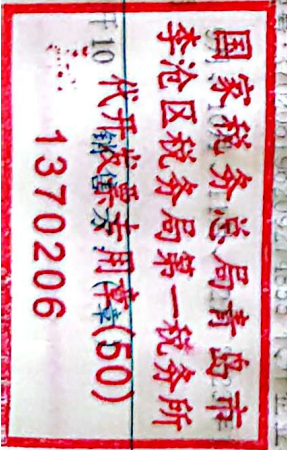 国家税务总局青岛市
李沧区税务局第一税务所
代开发票专用章(50)
1370206